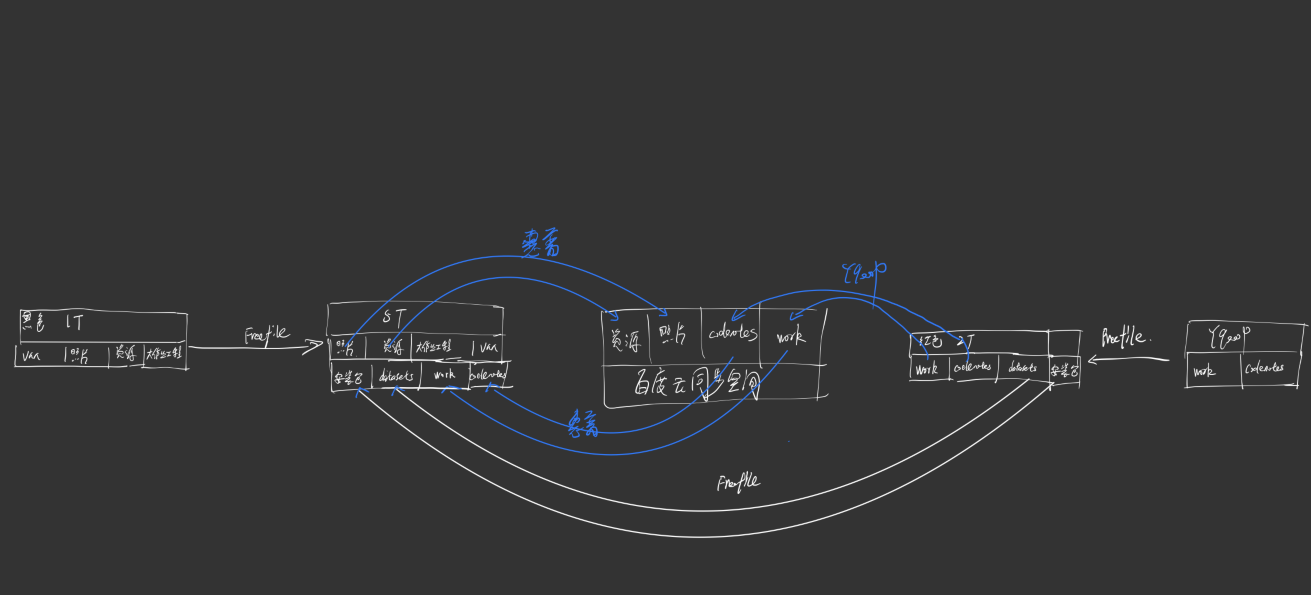 惠普
黑色 1T
van 照片 资源 大作业工程
Freefile
5T
照片 资源 大作业工程 van
安装包 datasets work codenotes
资源 照片 codenotes work
百度云同步空间
惠普
红色 2T
work codenotes datasets 安装包
Freefile.
work codenotes
Freefile